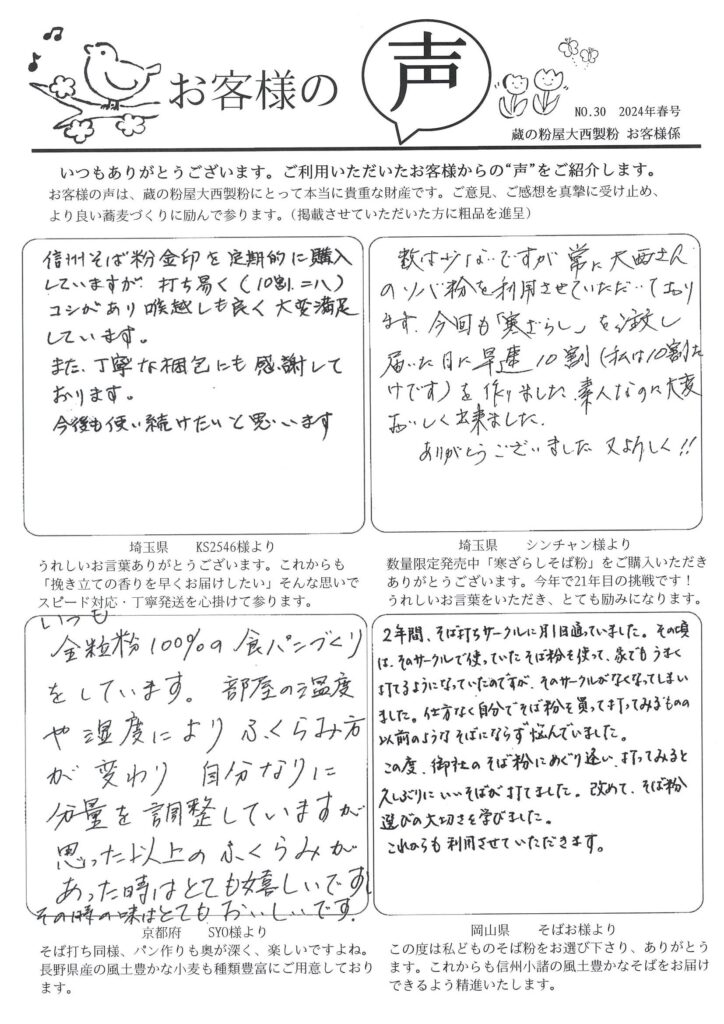 お客様の声
NO.30 2024年春号
蔵の粉屋大西製粉 お客様係
いつもありがとうございます。ご利用いただいたお客様からの“声”をご紹介します。
お客様の声は、蔵の粉屋大西製粉にとって本当に貴重な財産です。ご意見、ご感想を真摯に受け止め、
より良い蕎麦づくりに励んで参ります。（掲載させていただいた方に粗品を進呈）
信州そば粉金印を定期的に購入
していますが 打ち易く（10割、二八）
コシがあり喉越しも良く大変満足
しています。
また、丁寧な梱包にも感謝して
おります。
今後も使い続けたいと思います
埼玉県 KS2546様より
うれしいお言葉ありがとうございます。これからも
「挽き立ての香りを早くお届けしたい」そんな思いで
スピード対応・丁寧発送を心掛けて参ります。
数は少ないですが常に大西さん
のソバ粉を利用させていただいており
ます。今回も「寒ざらし」を注文し
届いた日に早速10割（私は10割だ
けです）を作りました。素人なのに大変
おいしく出来ました。
ありがとうございました 又よろしく!!
埼玉県 シンチャン様より
数量限定発売中「寒ざらしそば粉」をご購入いただき
ありがとうございます。今年で21年目の挑戦です！
うれしいお言葉をいただき、とても励みになります。
いつも
全粒粉100%の食パンづくり
をしています。部屋の温度
や湿度によりふくらみ方
が変わり 自分なりに
分量を調整していますが
思った以上のふくらみが
あった時はとても嬉しいです。
その時の味はとてもおいしいです。
京都府 SYO様より
そば打ち同様、パン作りも奥が深く、楽しいですよね。
長野県産の風土豊かな小麦も種類豊富にご用意しており
ます。
2年間、そば打ちサークルに月1日通っていました。その頃
は、そのサークルで使っていたそば粉を使って、家でもうまく
打てるようになっていたのですが、そのサークルがなくなってしまい
ました。仕方なく自分でそば粉を買って打ってみるものの
以前のようなそばにならず悩んでいました。
この度、御社のそば粉にめぐり逢い、打ってみると
久しぶりにいいそばが打てました。改めて、そば粉
選びの大切さを学びました。
これからも利用させていただきます。
岡山県 そばお様より
この度は私どものそば粉をお選び下さり、ありがとう
ます。これからも信州小諸の風土豊かなそばをお届け
できるよう精進いたします。